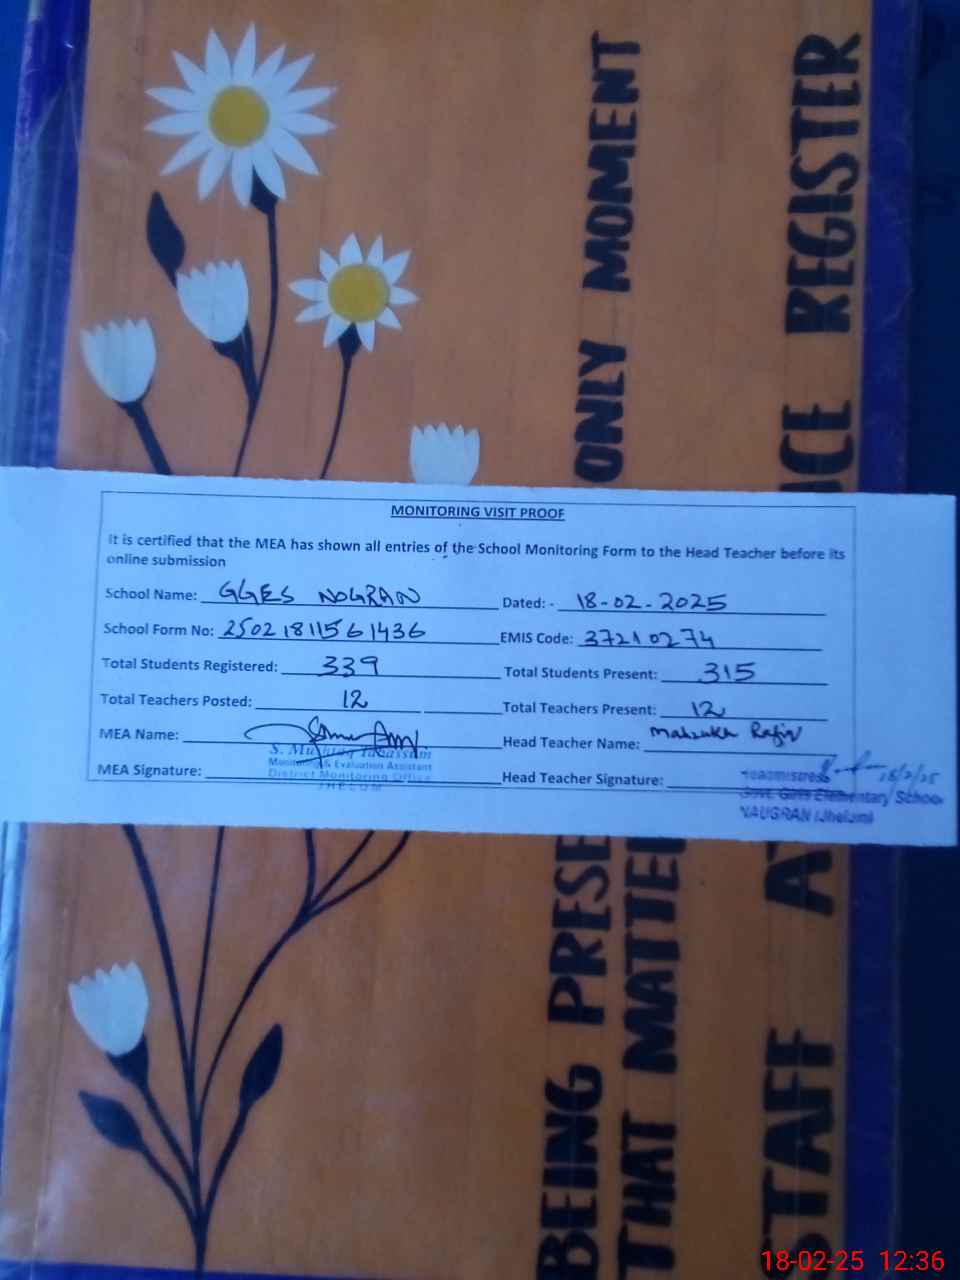 MONITORING VISIT PROOF
It is certified that the MEA has shown all entries of the School Monitoring Form to the Head Teacher before its
online submission
School Name: GGES NOGRAN Dated: - 18-02-2025
School Form No: 25021811561436 EMIS Code: 37210274
Total Students Registered: 339 Total Students Present: 315
Total Teachers Posted: 12 Total Teachers Present: 12
MEA Name: Head Teacher Name:
S. Mushtaq Tabassum
Monitoring & Evaluation Assistant
District Monitoring Office
JHELUM
MEA Signature: Head Teacher Signature: 18/2/25
Headmistress
Govt. Girls Elementary School
NAUGRAN (Jhelum)
BEING PRESE ONLY MOMENT
THAT MATTE
STAFF AT NCE REGISTER
18-02-25 12:36